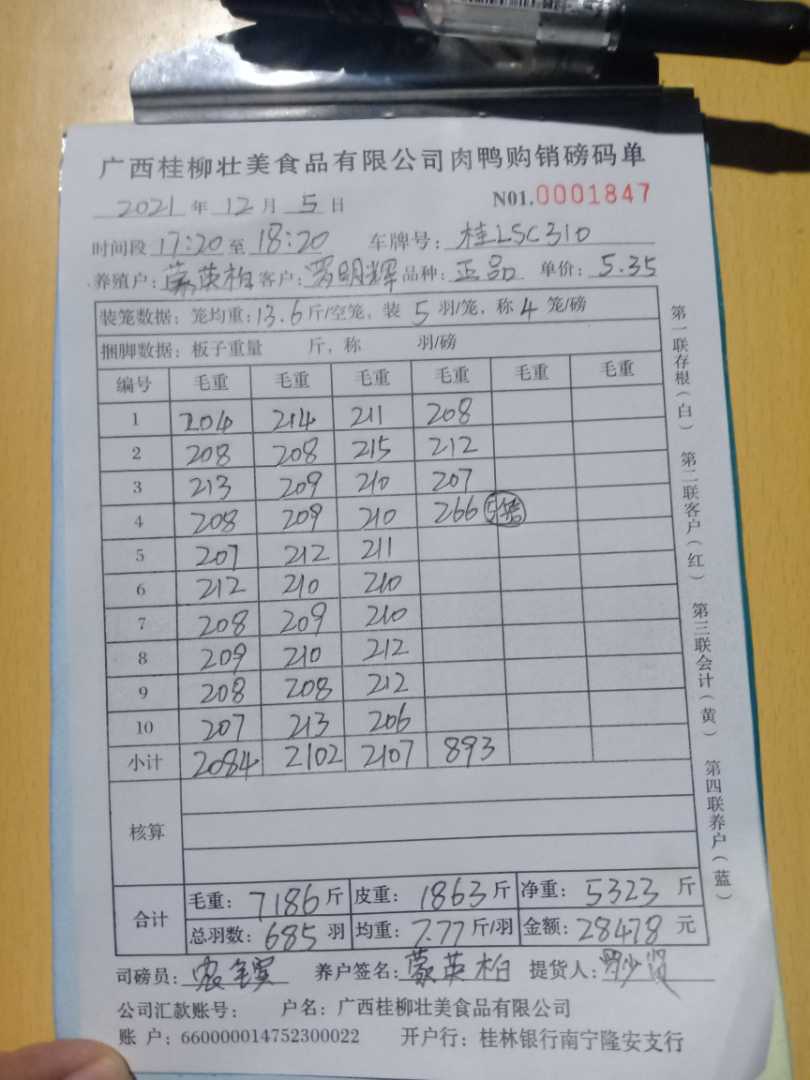 广西桂柳壮美食品有限公司肉鸭购销磅码单
2021 年 12 月 5 日 N01.0001847
时间段 17:20 至 18:20 车牌号: 桂LSC310
养殖户: 蒙英柏 客户: 罗明辉 品种: 正品 单价: 5.35
装笼数据: 笼均重: 13.6 斤/空笼, 装 5 羽/笼, 称 4 笼/磅
捆脚数据: 板子重量 斤, 称 羽/磅
编号 毛重 毛重 毛重 毛重 毛重 毛重
1 204 214 211 208
2 208 208 215 212
3 213 209 210 207
4 208 209 210 266 5笼
5 207 212 211
6 212 210 210
7 208 209 210
8 209 210 212
9 208 208 212
10 207 213 206
小计 2084 2102 2107 893
核算
合计 毛重: 7186 斤 皮重: 1863 斤 净重: 5323 斤
总羽数: 685 羽 均重: 7.77 斤/羽 金额: 28478 元
司磅员: 养户签名: 蒙英柏 提货人:
公司汇款账号: 户名: 广西桂柳壮美食品有限公司
账 户: 660000014752300022 开户行: 桂林银行南宁隆安支行
第一联存根(白) 第二联客户(红) 第三联会计(黄) 第四联养户(蓝)